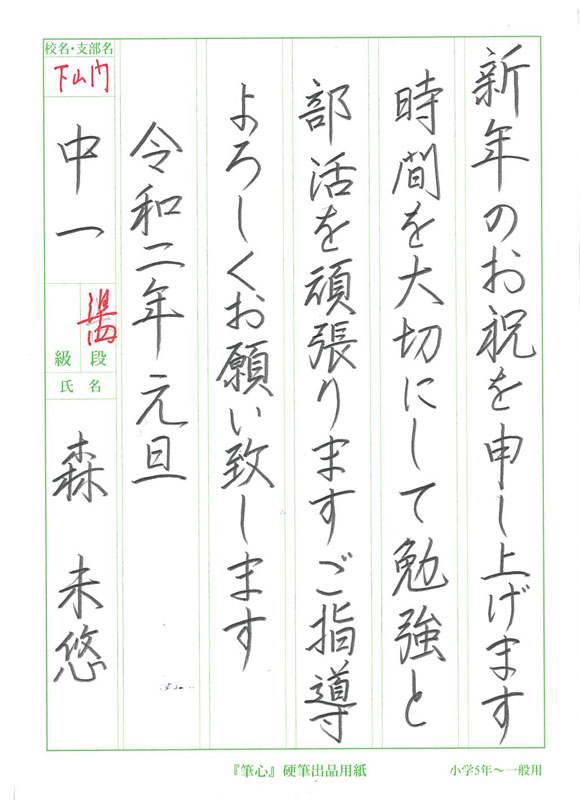 新年のお祝を申し上げます
時間を大切にして勉強と
部活を頑張りますご指導
よろしくお願い致します
令和二年元旦
校名・支部名
下山門
中一
準四
段
級
氏名
森 未悠
『筆心』硬筆出品用紙
小学5年～一般用